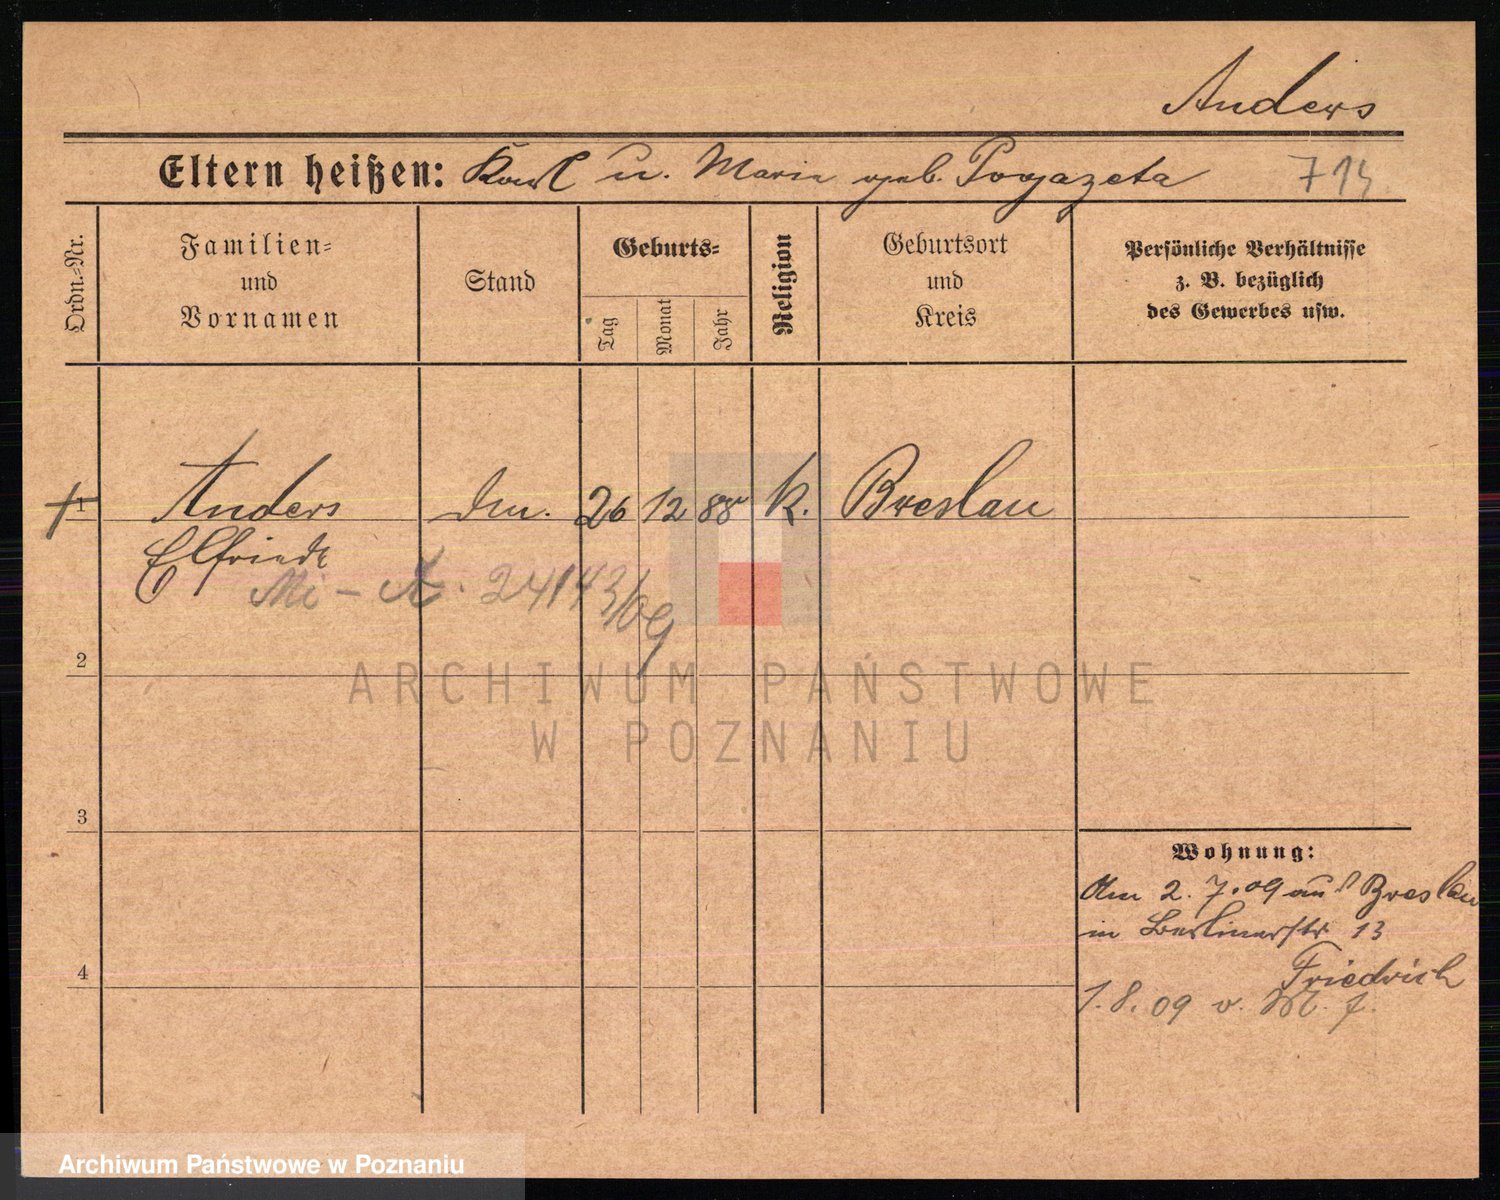 Anders
Eltern heißen: Karl u. Marie geb. Pogazeta 714
Ordn.-Nr.
Familien-
und
Vornamen
Stand
Geburts-
Tag
Monat
Jahr
Religion
Geburtsort
und
Kreis
Persönliche Verhältnisse
z. B. bezüglich
des Gewerbes usw.
1 Anders 26 12 88 k. Breslau
Elfriede
24143/09
2
3
4
Wohnung:
Am 2. 7. 09 aus Breslau
in Berlinerstr 13
Friedrich
1. 8. 09 v.
ARCHIWUM PAŃSTWOWE
W POZNANIU
Archiwum Państwowe w Poznaniu